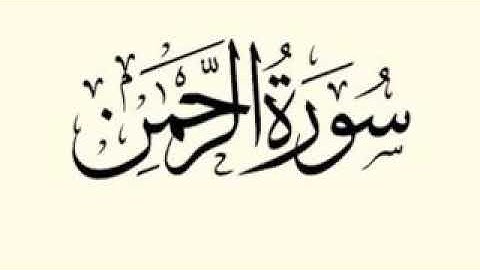 سُورَةُ الرَّحْمٰن